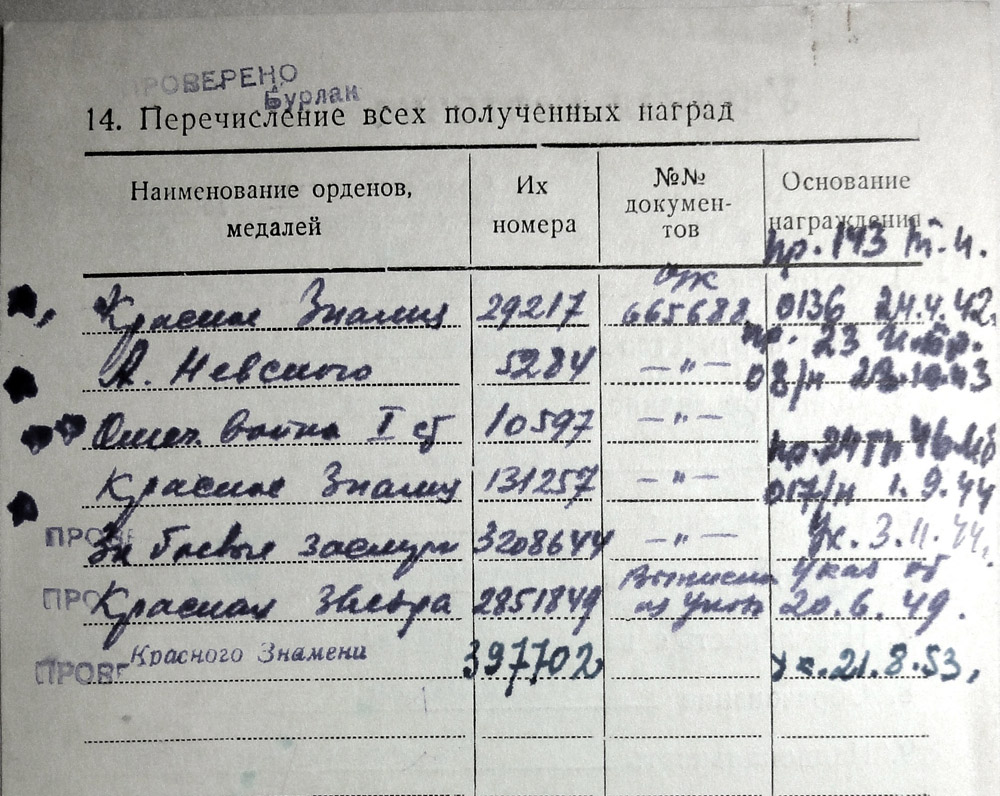 ПРОВЕРЕНО
Бурлак
14. Перечисление всех полученных наград
Наименование орденов, медалей
Их номера
№№ документов
Основание награждения
пр. 143
Красное Знамя 29217 665688 0136 24.4.42.
пр. 23
А. Невского 5284 —"— 08/н 23.10.43
Отеч. война I ст 10597 —"—
пр. 24
Красное Знамя 131257 —"— 017/н 1.9.44
ПРОВЕ За боевые заслуги 3208644 —"— Ук. 3.11.44.
Выписка Указ от
ПРО Красная Звезда 2851849 из Указа 20.6.49.
ПРОВЕ Красного Знамени 397702 Ук. 21.8.53.